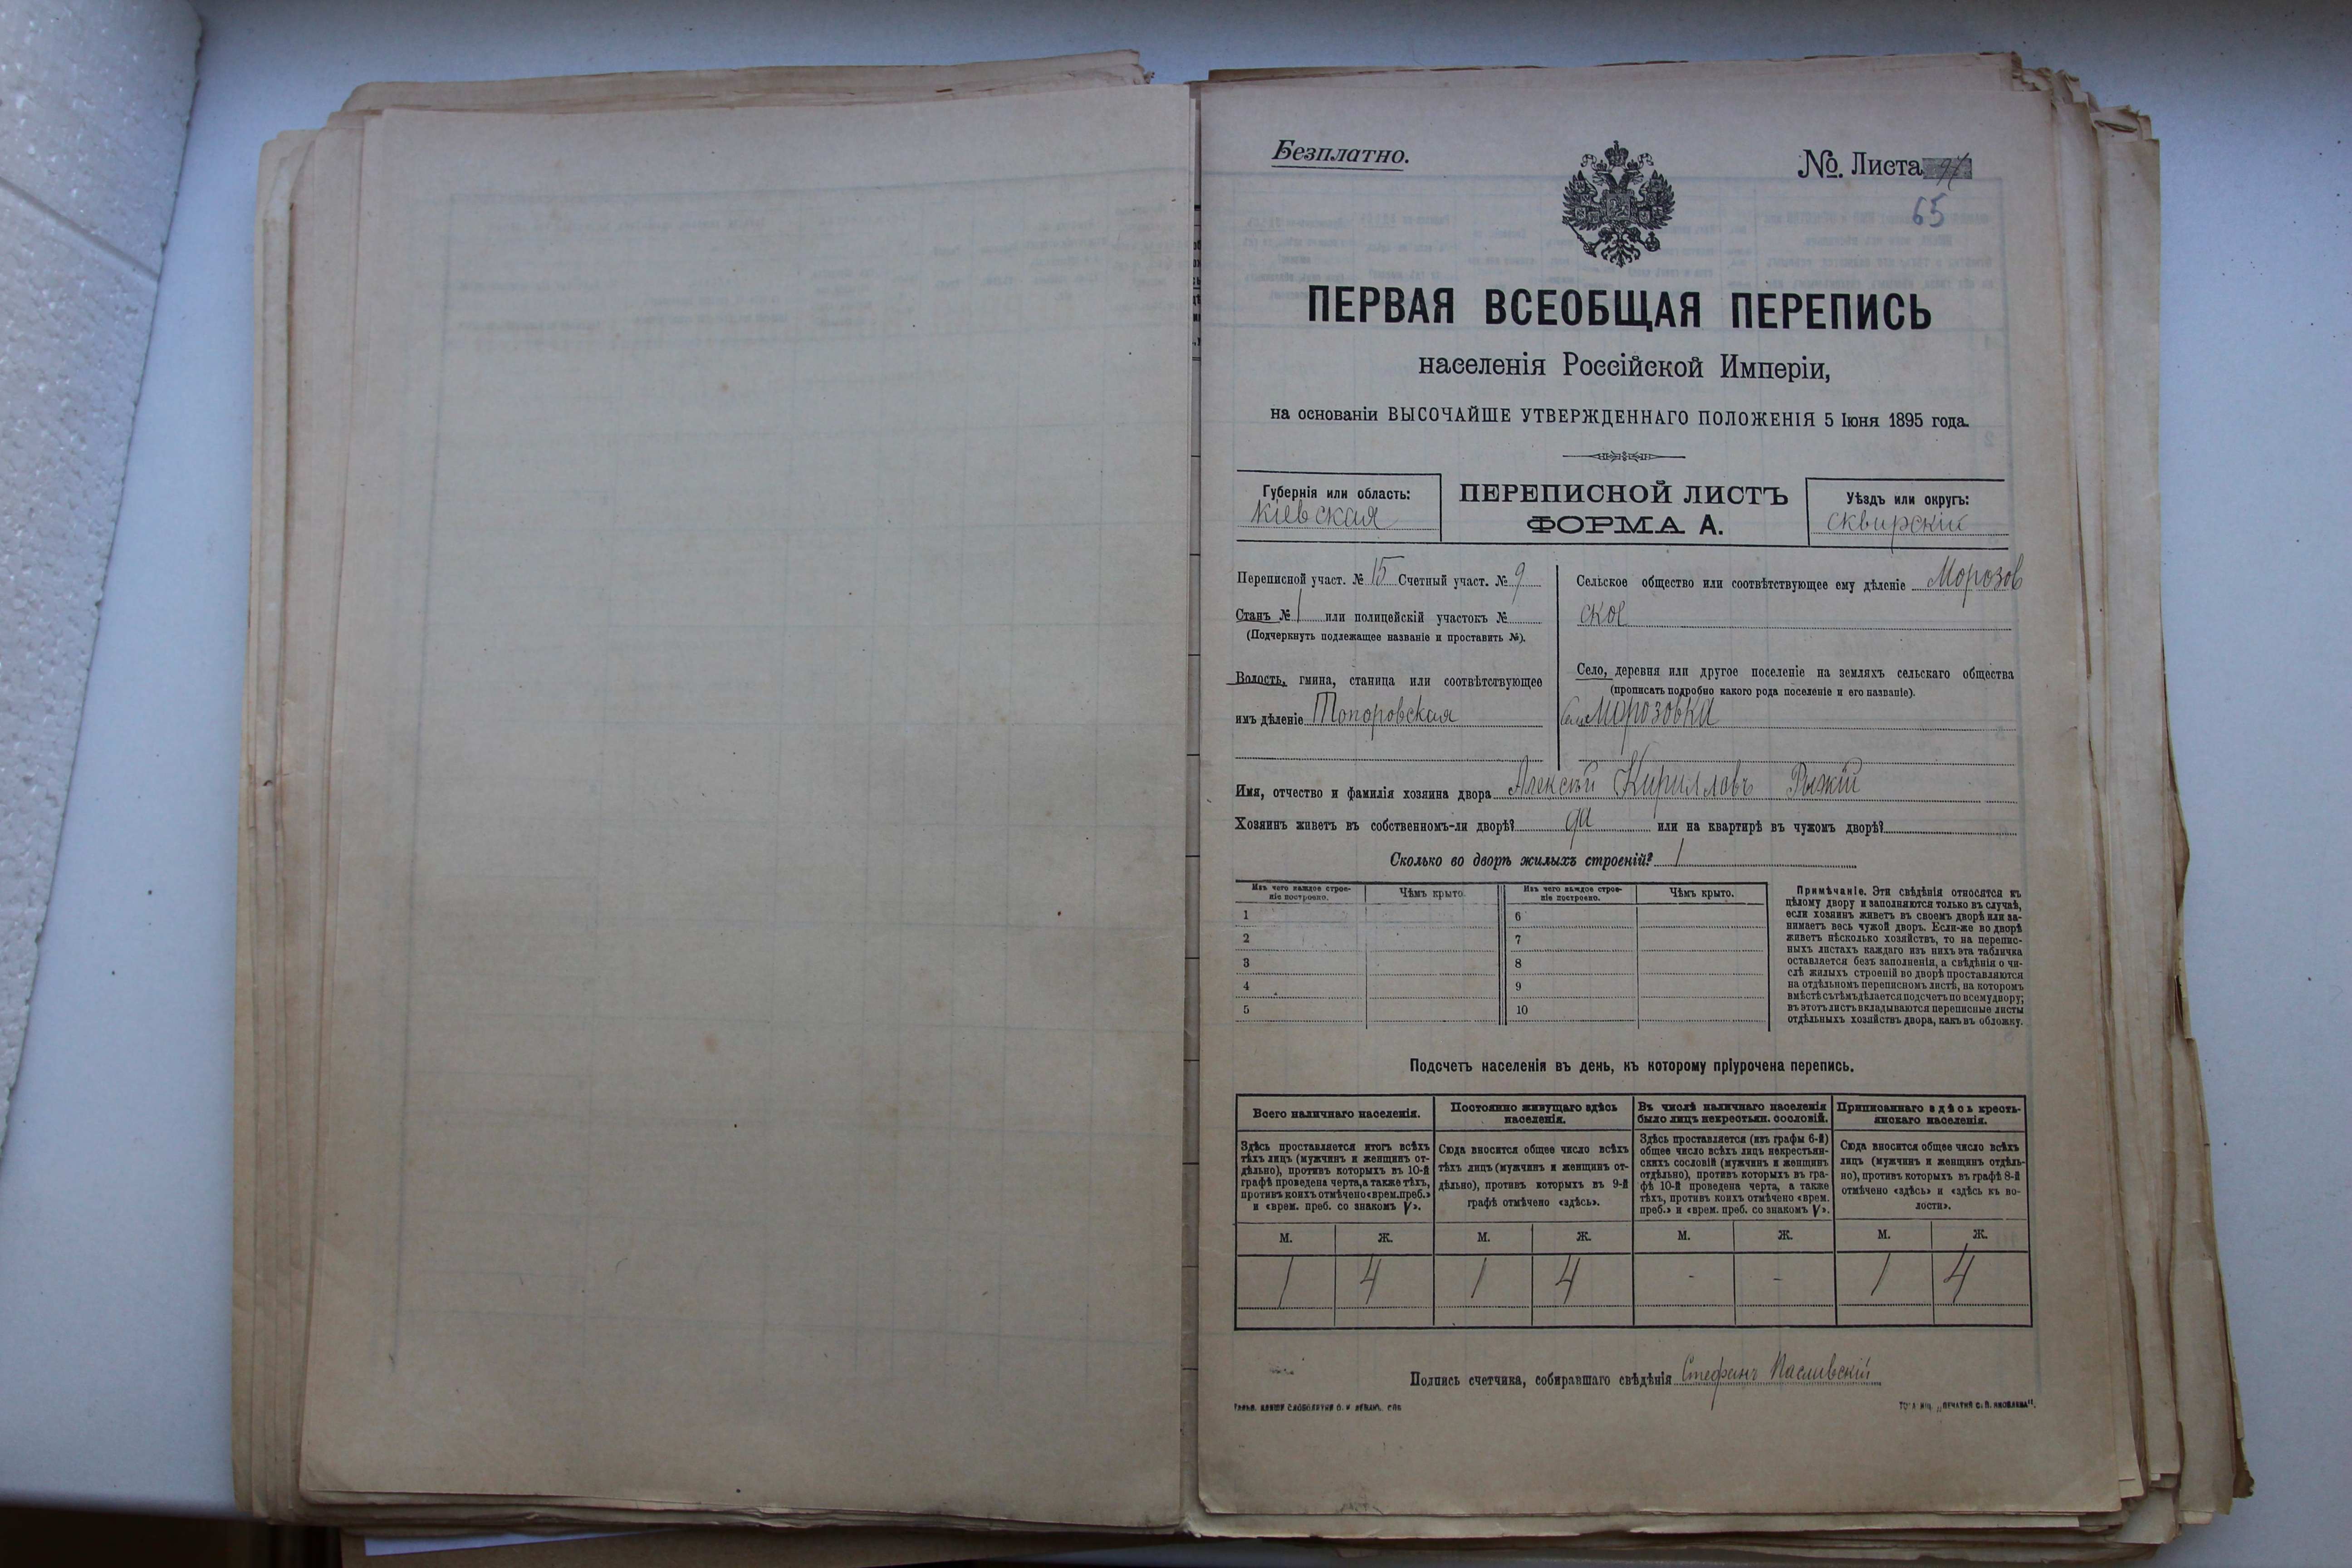 Безплатно.
№ Листа 97
65
ПЕРВАЯ ВСЕОБЩАЯ ПЕРЕПИСЬ
населенія Россійской Имперіи,
на основаніи ВЫСОЧАЙШЕ УТВЕРЖДЕННАГО ПОЛОЖЕНІЯ 5 Іюня 1895 года.
Губернія или область:
Кіевская
ПЕРЕПИСНОЙ ЛИСТЪ
ФОРМА А.
Уѣздъ или округъ:
Сквирскій
Переписной участ. № 15 Счетный участ. № 9
Станъ № 1 или полицейскій участокъ №
(Подчеркнуть подлежащее названіе и проставить №).
Волость, гмина, станица или соотвѣтствующее
имъ дѣленіе Топоровская
Сельское общество или соотвѣтствующее ему дѣленіе Морозов
ское
Село, деревня или другое поселеніе на земляхъ сельскаго общества
(прописать подробно какого рода поселеніе и его названіе).
Село Морозовка
Имя, отчество и фамилія хозяина двора Алексѣй Кирилловъ Рыжій
Хозяинъ живетъ въ собственномъ-ли дворѣ? да или на квартирѣ въ чужомъ дворѣ?
Сколько во дворѣ жилыхъ строеній? 1
Изъ чего каждое строе-
ніе построено.
Чѣмъ крыто.
Изъ чего каждое строе-
ніе построено.
Чѣмъ крыто.
1 6
2 7
3 8
4 9
5 10
Примѣчаніе. Эти свѣдѣнія относятся къ
цѣлому двору и заполняются только въ случаѣ,
если хозяинъ живетъ въ своемъ дворѣ или за-
нимаетъ весь чужой дворъ. Если-же во дворѣ
живетъ нѣсколько хозяйствъ, то на перепис-
ныхъ листахъ каждаго изъ нихъ эта табличка
оставляется безъ заполненія, а свѣдѣнія о чи-
слѣ жилыхъ строеній во дворѣ проставляются
на отдѣльномъ переписномъ листѣ, на которомъ
вмѣстѣ съ тѣмъ дѣлается подсчетъ по всему двору;
въ этотъ листъ вкладываются переписные листы
отдѣльныхъ хозяйствъ двора, какъ въ обложку.
Подсчетъ населенія въ день, къ которому пріурочена перепись.
Всего наличнаго населенія.
Здѣсь проставляется итогъ всѣхъ
тѣхъ лицъ (мужчинъ и женщинъ от-
дѣльно), противъ которыхъ въ 10-й
графѣ проведена черта, а также тѣхъ,
противъ коихъ отмѣчено «врем. преб.»
и «врем. преб. со знакомъ V».
Постоянно живущаго здѣсь
населенія.
Сюда вносится общее число всѣхъ
тѣхъ лицъ (мужчинъ и женщинъ от-
дѣльно), противъ которыхъ въ 9-й
графѣ отмѣчено «здѣсь».
Въ числѣ наличнаго населенія
было лицъ некрестьян. сословій.
Здѣсь проставляется (изъ графы 6-й)
общее число всѣхъ лицъ некрестьян-
скихъ сословій (мужчинъ и женщинъ
отдѣльно), противъ которыхъ въ гра-
фѣ 10-й проведена черта, а также
тѣхъ, противъ коихъ отмѣчено «врем.
преб.» и «врем. преб. со знакомъ V».
Приписаннаго здѣсь кресть-
янскаго населенія.
Сюда вносится общее число всѣхъ
лицъ (мужчинъ и женщинъ отдѣль-
но), противъ которыхъ въ графѣ 8-й
отмѣчено «здѣсь» и «здѣсь къ во-
лости».
М. Ж. М. Ж. М. Ж. М. Ж.
1 4 1 4 - - 1 4
Подпись счетчика, собиравшаго свѣдѣнія Стефанъ